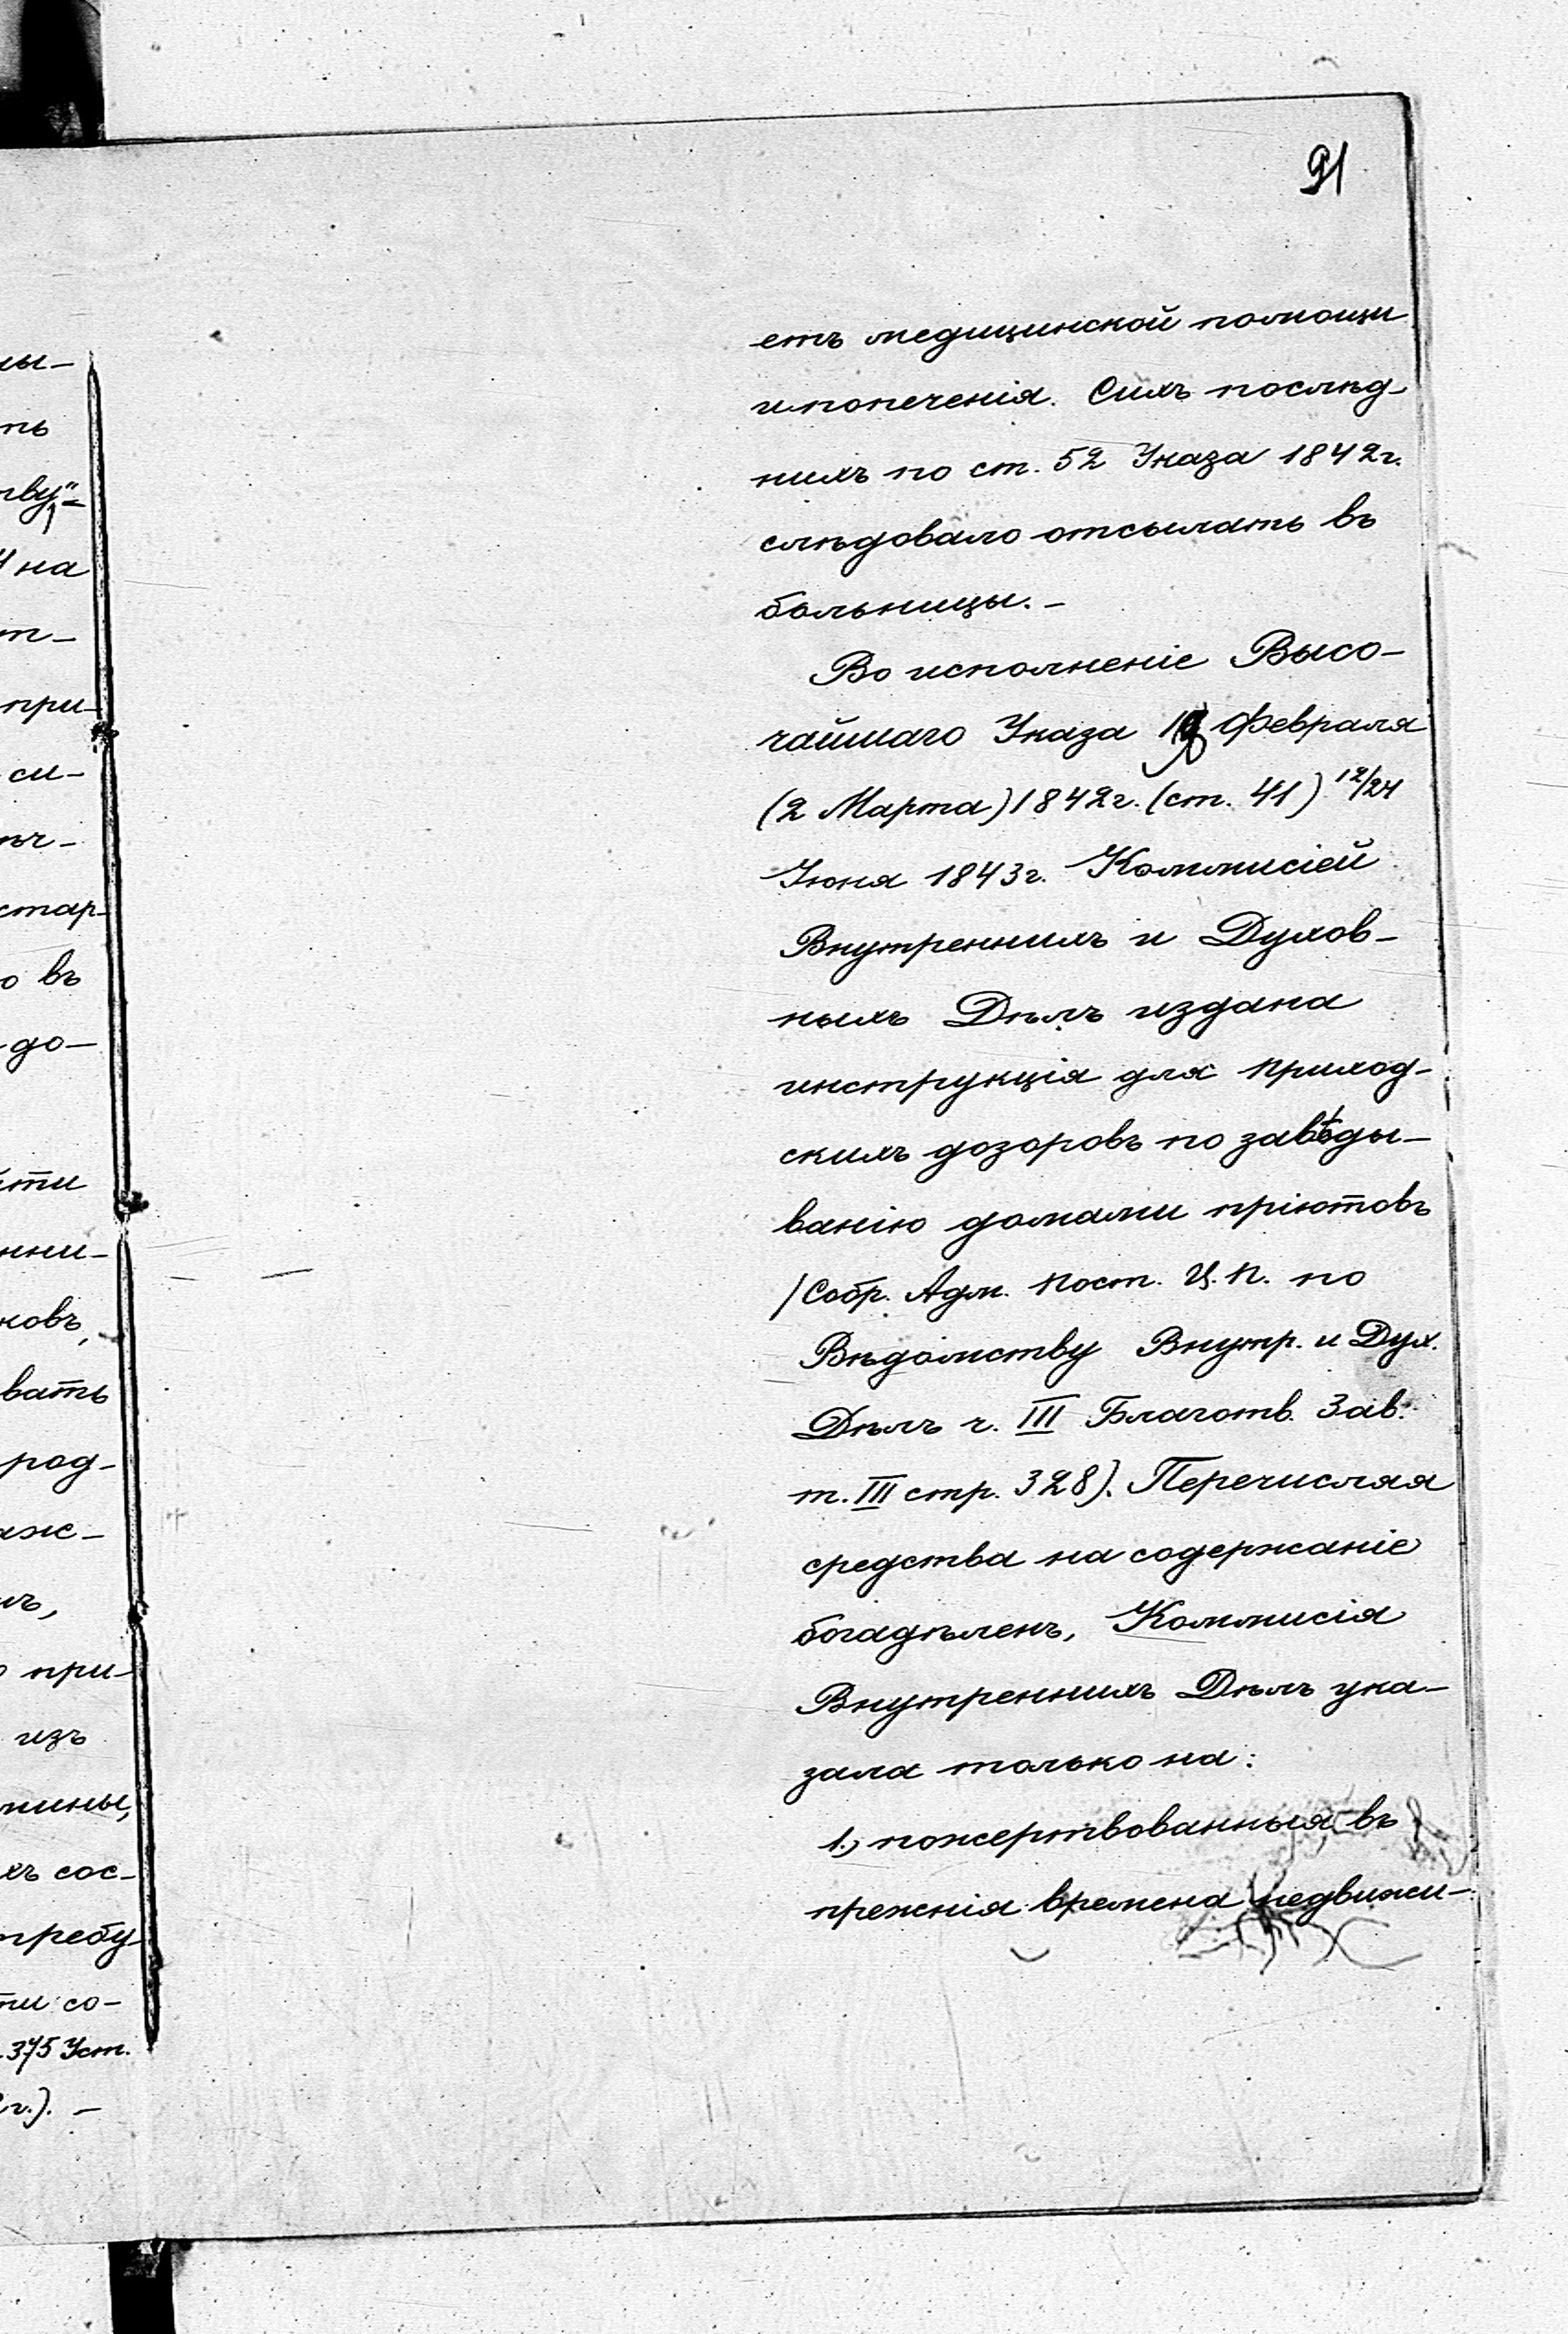 91
етъ медицинской помощи
и попеченія. Сихъ послѣд-
нихъ по ст. 52 Указа 1842 г.
слѣдовало отсылать въ
больницы. -
Во исполненіе Высо-
чайшаго Указа Февраля
(2 Марта) 1842 г. (ст. 41) 12/24
Іюня 1843 г. Коммисіей
Внутреннихъ и Духов-
ныхъ Дѣлъ издана
инструкція для приход-
скихъ дозоровъ по завѣды-
ванію домами пріютовъ
/Собр. Адм. Пост. Ц. П. по
Вѣдомству Внутр. и Дух.
Дѣлъ ч. III Благотв. Зав.
т. III стр. 328). Перечисляя
средства на содержаніе
богадѣленъ, Коммисія
Внутреннихъ Дѣлъ ука-
зала только на:
1., пожертвованныя въ
прежнія времена недвижи-
на
при-
си-
стар-
въ
до-
вать
род-
при-
изъ
сос-
со-
375 Уст.